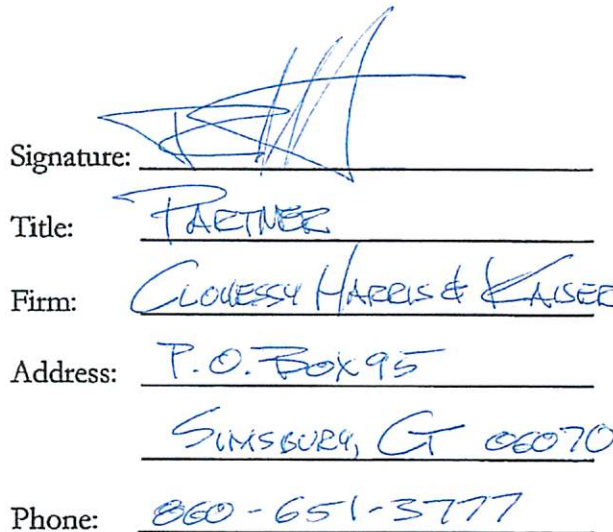 Signature:
Title: PARTNER
Firm: CLOHESSY HARRIS & KAISER
Address: P.O. BOX 95
SIMSBURY, CT 06070
Phone: 860-651-3777